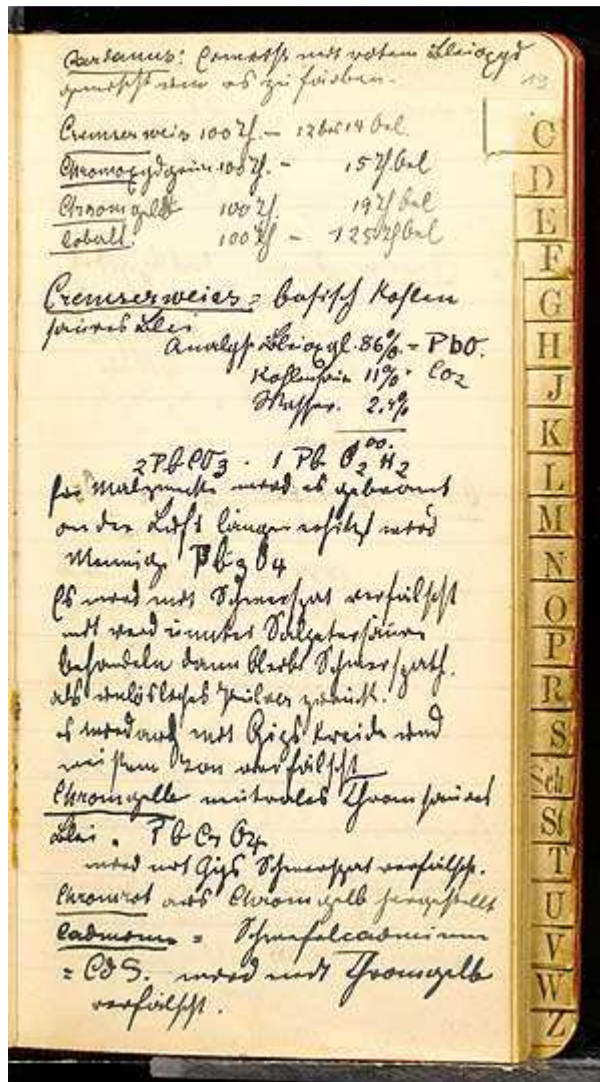 mit rotem Bleioxyd
gemischt um es zu färben.
13
Cremserweis 100 Th. – 12 bis 14 Oel
Chromoxydgrün 100 Th. – 15 Th Oel
Chromgelb 100 Th. 19 Th Oel
Cobalt. 100 Th – 125 Th Oel
Cremserweiss = basisch Kohlen
saures Blei
Analyse Bleioxyd. 86% = PbO.
Kohlensäure 11% CO2
Wasser. 2.4%
2PbCO3 . 1 Pb O2 H2
wird es gebrannt
an der Luft länger erhitzt wird
Mennige Pb3O4
Es wird mit Schwerspat verfälscht
mit verdünnter Salpetersäure
behandeln dann bleibt Schwerspath.
als unlösliches Pulver zurück.
es wird auch mit Gips Kreide und
weissem Ton verfälscht
Chromgelb neutrales Chromsaures
Blei = Pb Cr O4
wird mit Gips Schwerspat verfälscht.
Chromrot aus Chromgelb hergestellt
Cadmium = Schwefelcadmium
= CdS. wird mit Chromgelb
verfälscht.
C
D
E
F
G
H
J
K
L
M
N
O
P
R
S
Sch
St
T
U
V
W
Z